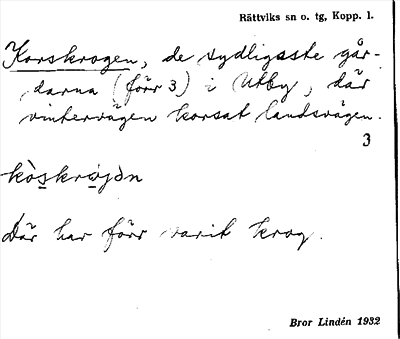 Rättviks sn o. tg, Kopp. l.
Korskrogen, de sydligaste går-
darna (förr 3) i Utby, där
vintervägen korsat landsvägen.
3
kòskrωjən
Där har förr varit krog.
Bror Lindén 1932